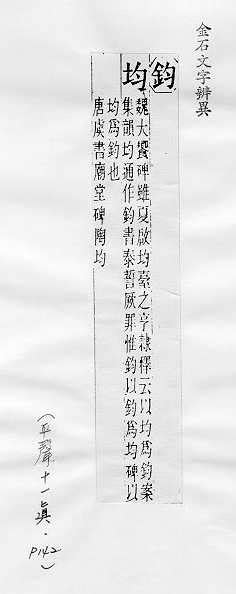 金石文字辨異
鈞
均
魏大饗碑雖夏啟均臺之享隸釋云以均為鈞案
集韻均通作鈞書泰誓厥罪惟鈞以鈞為均碑以
均為鈞也
唐虞書廟堂碑陶均
(平聲十一真.P142)